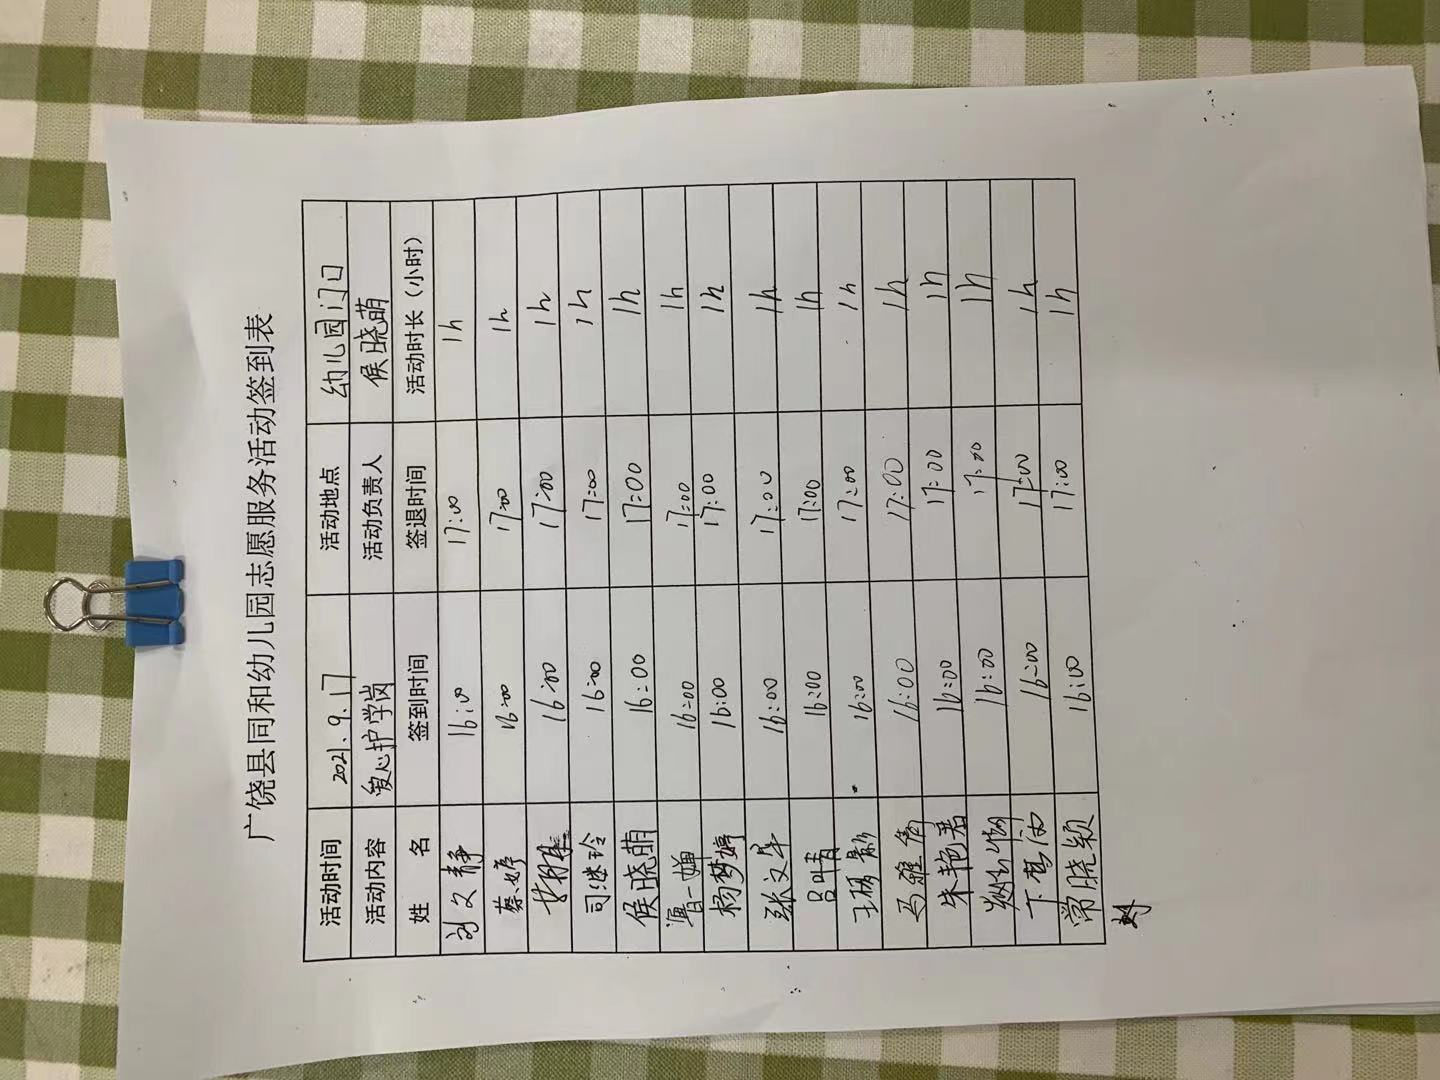 广饶县同和幼儿园志愿服务活动签到表
活动时间 2021.9.17 活动地点 幼儿园门口
活动内容 爱心护学岗 活动负责人 侯晓萌
姓 名 签到时间 签退时间 活动时长（小时）
刘文静 16:00 17:00 1h
蔡婷 16:00 17:00 1h
16:00 17:00 1h
司继玲 16:00 17:00 1h
侯晓萌 16:00 17:00 1h
16:00 17:00 1h
杨梦婷 16:00 17:00 1h
张文军 16:00 17:00 1h
吕晴 16:00 17:00 1h
王杨影 16:00 17:00 1h
马雅倩 16:00 17:00 1h
朱艳君 16:00 17:00 1h
16:00 17:00 1h
16:00 17:00 1h
常晓颖 16:00 17:00 1h